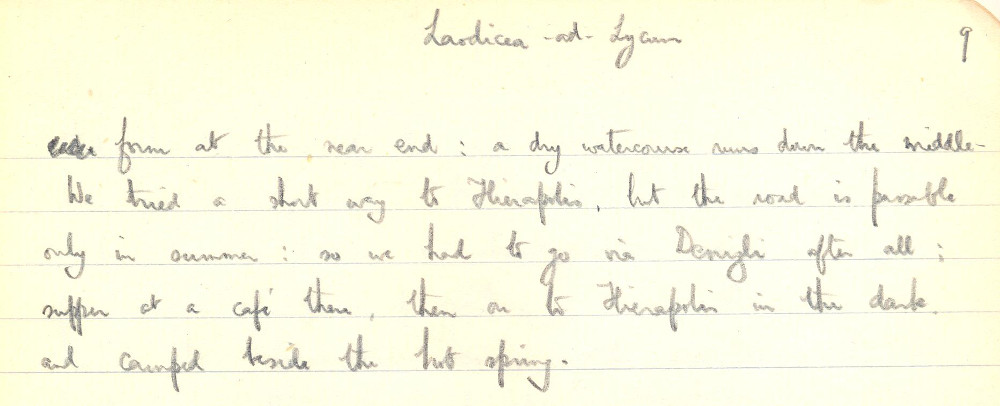 Laodicea-ad-Lycum
9
form at the near end : a dry watercourse runs down the middle-
We tried a short way to Hierapolis, but the road is passable
only in summer : so we had to go via Denizli after all ;
supper at a café there, then on to Hierapolis in the dark.
and camped beside the hot spring.